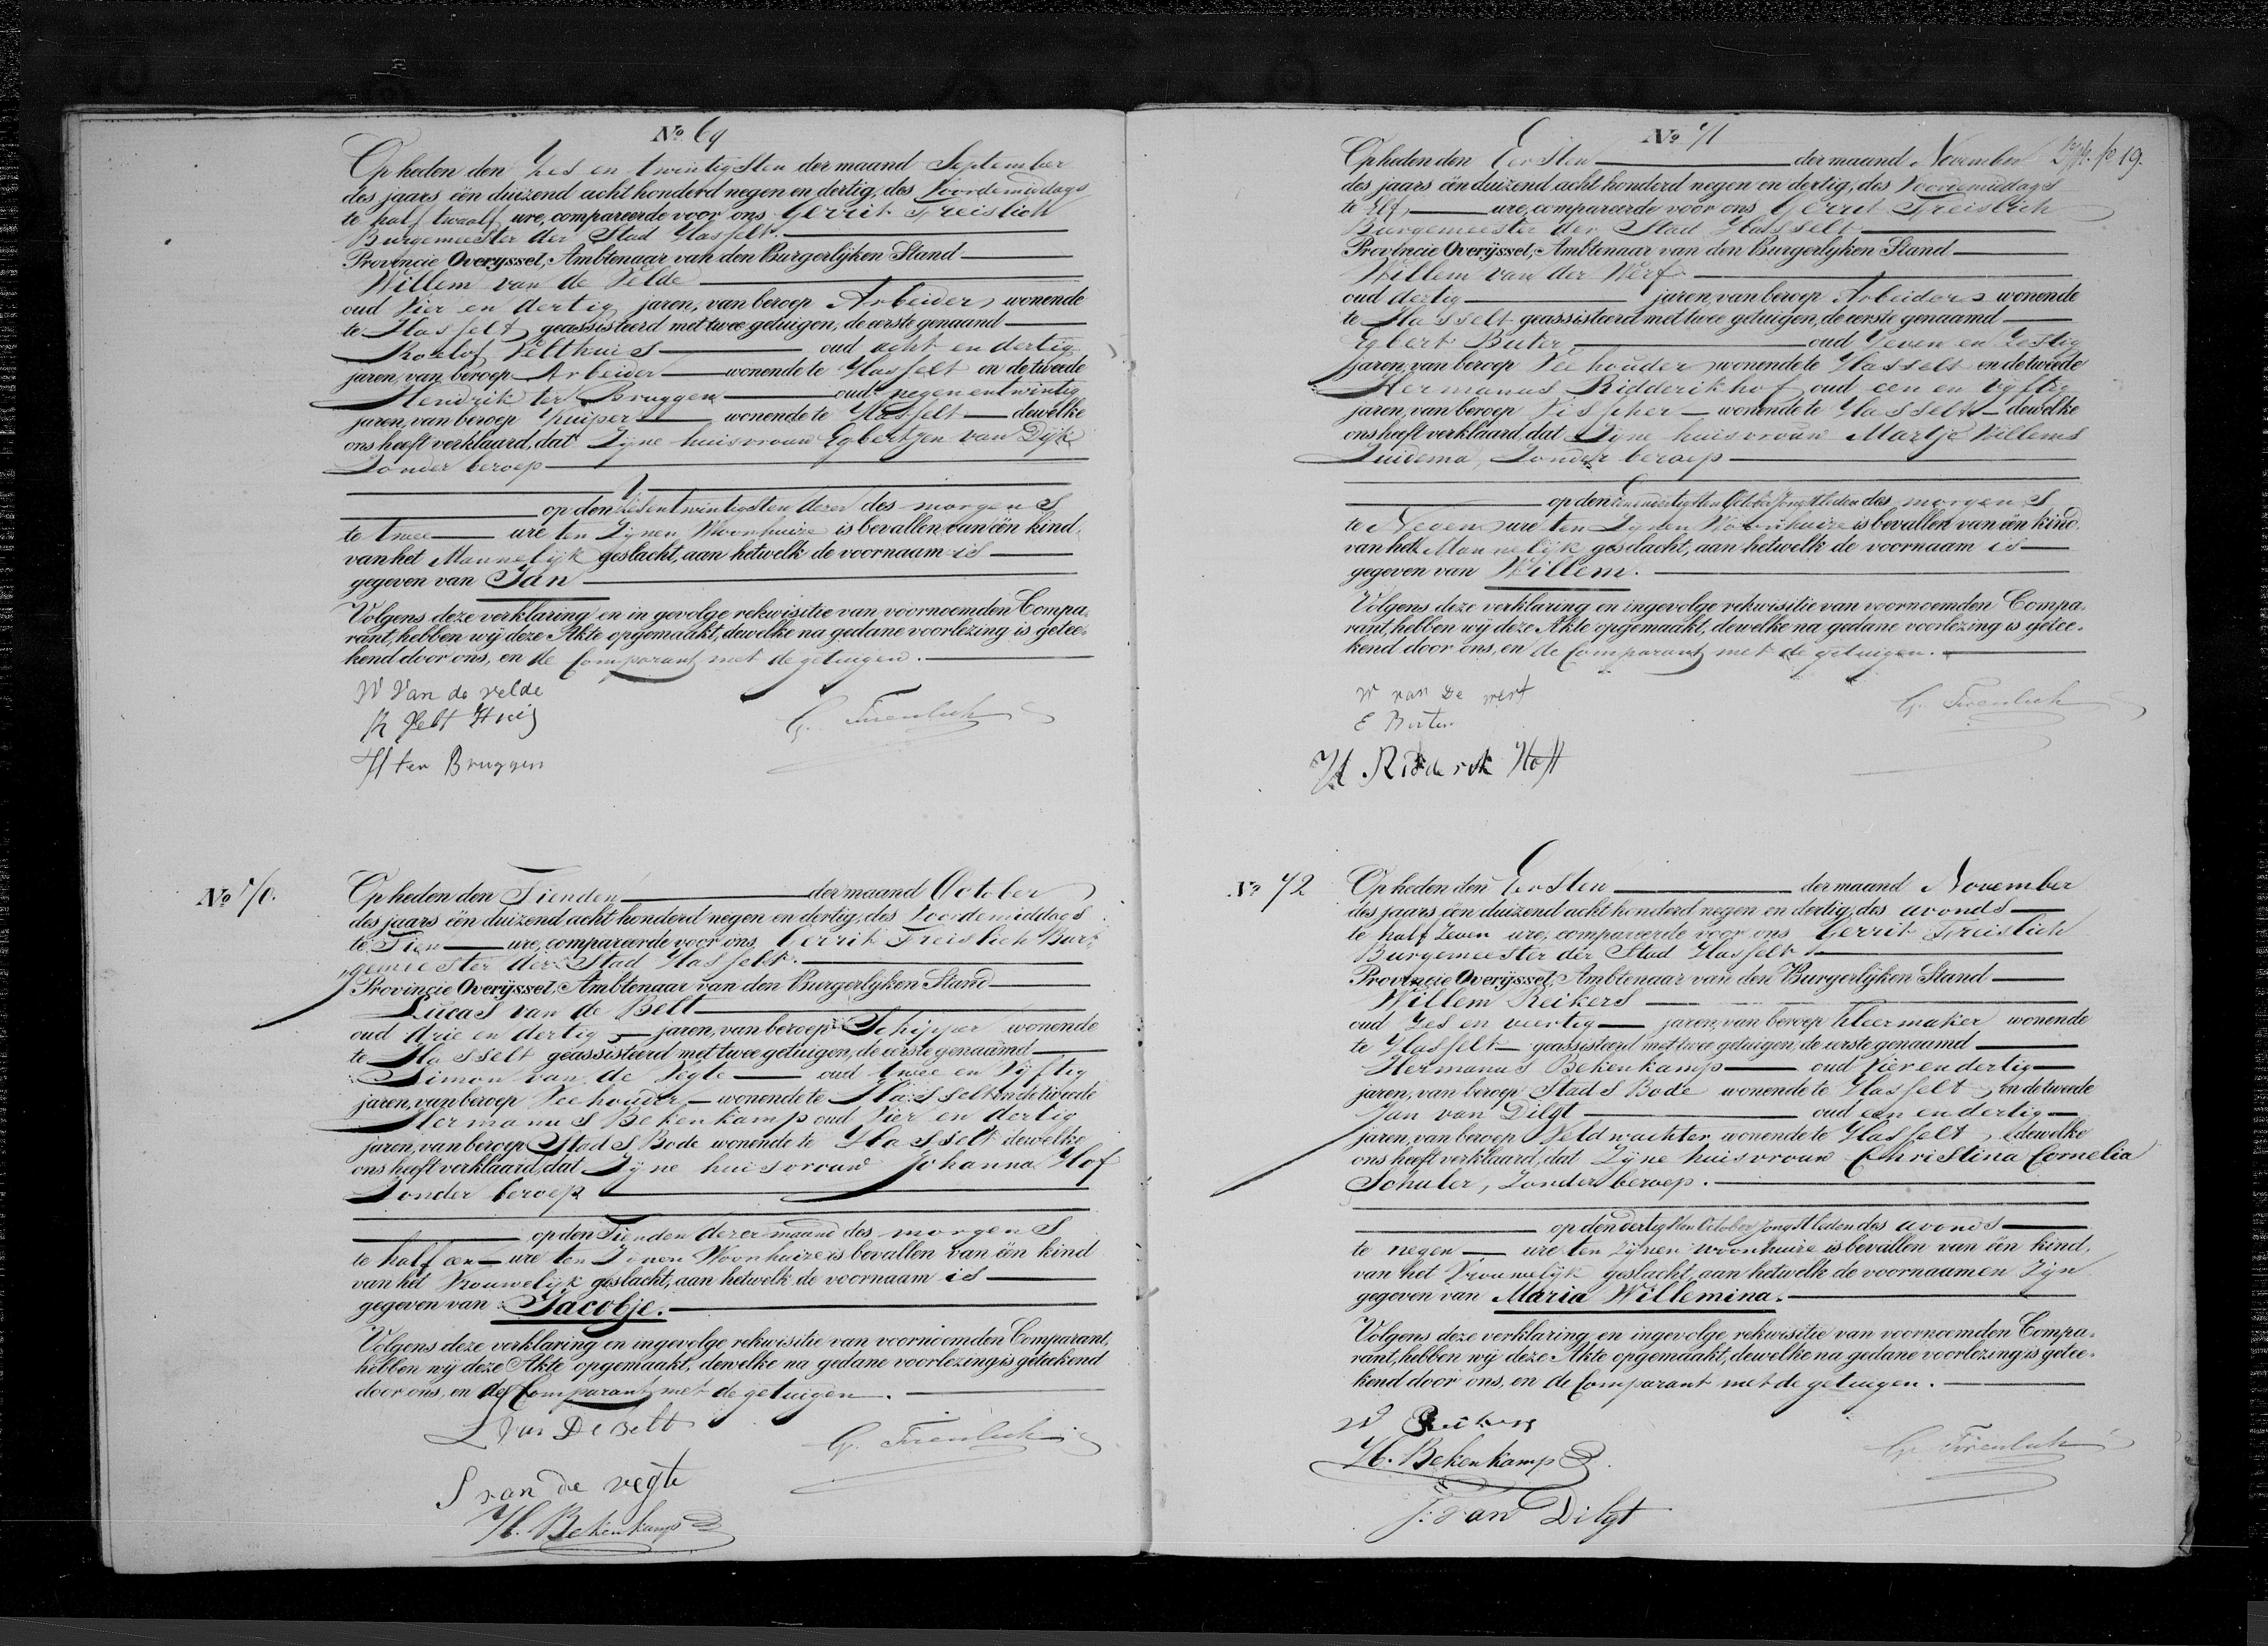 Nº 69
Op heden den Zes en twintigsten der maand September
des jaars één duizend acht honderd negen en dertig, des Voordemiddags
te half twaalf ure, compareerde voor ons Gerrit Freislich
Burgemeester der Stad Hasselt.
Provincie Overÿssel, Ambtenaar van den Burgerlÿken Stand
Willem van de Velde
oud Vier en dertig jaren, van beroep Arbeider wonende
te Hasselt geassisteerd met twee getuigen, de eerste genaamd
Roelof Velthuis oud acht en dertig
jaren, van beroep Arbeider wonende te Hasselt en de tweede
Hendrik ter Bruggen oud negenentwintig
jaren, van beroep Kuiper wonende te Hasselt dewelke
ons heeft verklaard, dat Zijne huisvrouw Egbertjen van Dijk
Zonder beroep
op den Zesentwintigsten dezer des morgens
te twee ure ten Zijnen Woonhuize is bevallen van één kind,
van het Mannelijk geslacht, aan hetwelk de voornaam is
gegeven van Jan
Volgens deze verklaring en in gevolge rekwisitie van voornoemden Compa-
rant, hebben wÿ deze Akte opgemaakt, dewelke na gedane voorlezing is getee-
kend door ons, en de Comparant met de getuigen.
W Van de velde
R Velt Huis
H ter Bruggen
G. Freislich
Nº 70.
Op heden den Tienden der maand October
des jaars één duizend acht honderd negen en dertig, des Voordemiddags
te Tien ure, compareerde voor ons Gerrit Freislich Bur-
gemeester der Stad Hasselt.
Provincie Overÿssel, Ambtenaar van den Burgerlÿken Stand
Lucas van de Belt
oud drie en dertig jaren, van beroep Schipper wonende
te Hasselt geassisteerd met twee getuigen, de eerste genaamd
Simon van de Vegte oud twee en Vijftig
jaren, van beroep Veehouder wonende te Hasselt en de tweede
Hermanus Bekenkamp oud Vier en dertig
jaren, van beroep Stads Bode wonende te Hasselt dewelke
ons heeft verklaard, dat Zijne huisvrouw Johanna Hof
Zonder beroep
op den Tienden dezer maand des morgens
te half een ure ten Zijnen Woonhuize is bevallen van één kind
van het Vrouwelijk geslacht, aan hetwelk de voornaam is
gegeven van Jacobje.
Volgens deze verklaring en ingevolge rekwisitie van voornoemden Comparant,
hebben wÿ deze Akte opgemaakt, dewelke na gedane voorlezing is geteekend
door ons, en de Comparant met de getuigen.
L Van De Belt
S van de vegte
H. Bekenkamp
G. Freislich
Nº 71
19.
Op heden den Eersten der maand November
des jaars één duizend acht honderd negen en dertig, des Voordemiddags
te Elf ure, compareerde voor ons Gerrit Freislich
Burgemeester der Stad Hasselt
Provincie Overÿssel, Ambtenaar van den Burgerlyken Stand
Willem van der Werf
oud dertig jaren, van beroep Arbeider wonende
te Hasselt geassisteerd met twee getuigen, de eerste genaamd
Egbert Buter oud Zeven en Zestig
jaren, van beroep Veehouder wonende te Hasselt en de tweede
Hermanus Ridderikhof oud een en vijftig
jaren, van beroep Visscher wonende te Hasselt dewelke
ons heeft verklaard, dat Zijne huisvrouw Martje Willems
Zuidema, Zonder beroep
op den eenendertigsten October Jongstleden des morgens
te Zeven ure ten Zijnen Woonhuize is bevallen van één kind.
van het Mannelijk geslacht, aan hetwelk de voornaam is
gegeven van Willem.
Volgens deze verklaring en ingevolge rekwisitie van voornoemden Compa-
rant, hebben wÿ deze Akte opgemaakt, dewelke na gedane voorlezing is getee-
kend door ons, en de Comparant met de getuigen.
W van De werf
E Buter
H Ridderik Hoff
G. Freislich
Nº 72
Op heden den Eersten der maand November
des jaars één duizend acht honderd negen en dertig, des avonds
te half Zeven ure, compareerde voor ons Gerrit Freislich
Burgemeester der Stad Hasselt.
Provincie Overÿssel, Ambtenaar van den Burgerlÿken Stand
Willem Reikers
oud Zes en veertig jaren, van beroep Kleermaker wonende
te Hasselt geassisteerd met twee getuigen, de eerste genaamd
Hermanus Bekenkamp oud Vier en dertig
jaren, van beroep Stads Bode wonende te Hasselt en de tweede
Jan van Dilgt oud een en dertig
jaren, van beroep Veldwachter wonende te Hasselt, dewelke
ons heeft verklaard, dat Zijne huisvrouw Christina Cornelia
Schuler, Zonder beroep.
op den dertigsten October jongstleden des avonds
te negen ure ten Zijnen woonhuize is bevallen van één kind,
van het Vrouwelijk geslacht, aan hetwelk de voornaamen Zijn
gegeven van Maria Willemina.
Volgens deze verklaring en ingevolge rekwisitie van voornoemden Compa-
rant, hebben wÿ deze Akte opgemaakt, dewelke na gedane voorlezing is getee-
kend door ons, en de Comparant met de getuigen.
W Reikers
H. Bekenkamp
J. van Dilgt
G. Freislich